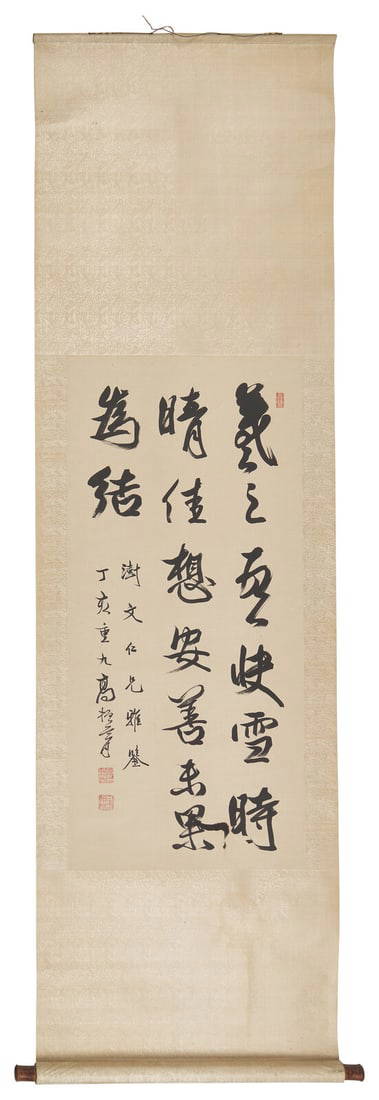 羲之頓快雪時
晴佳想安善未果
為結
澍文仁兄雅鑒
丁亥重九高振霄